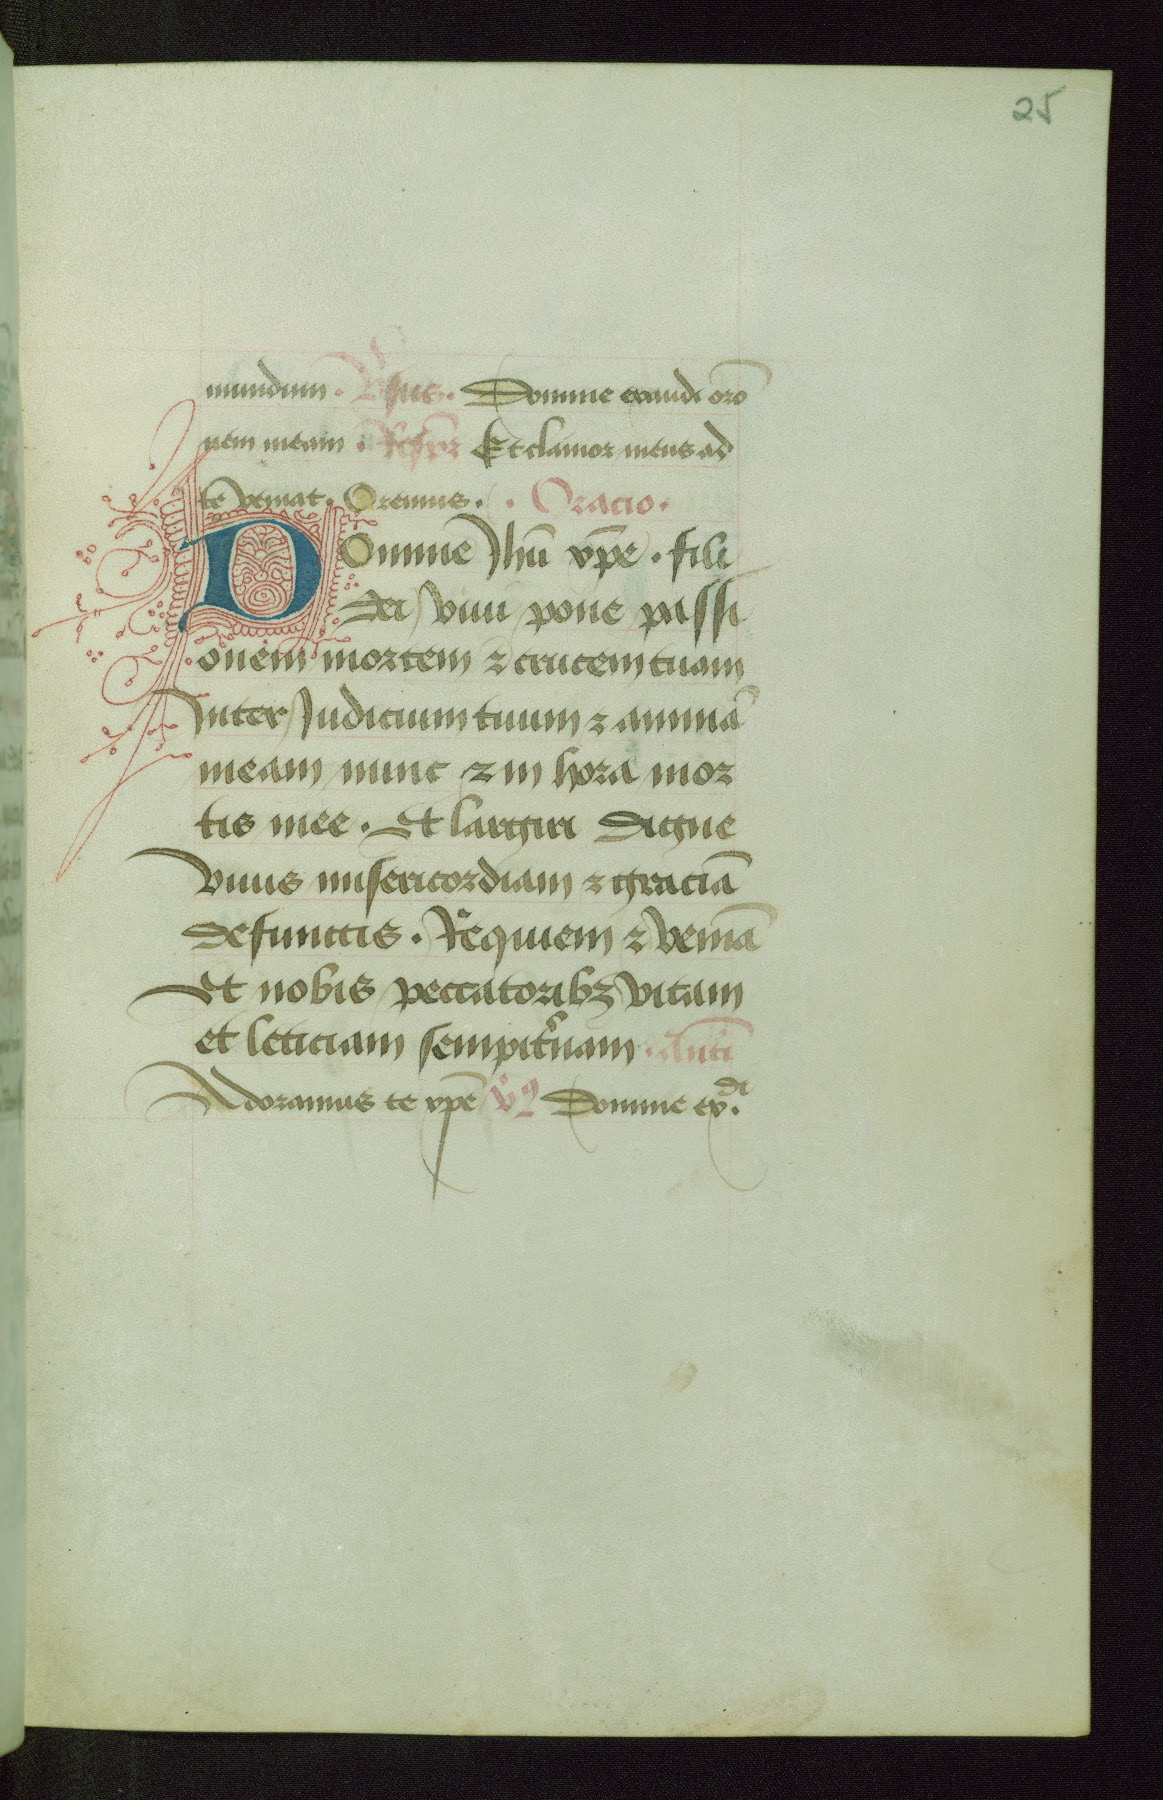 25
mundum . Vsus . Domine exaudi orō
nem meam . Respōz Et clamor meus ad
te veniat . Oremus . . Oracio .
Domine Jhū xp̄e . fili
dei viui pone passi
onem mortem ⁊ crucem tuam
Inter Judicium tuum ⁊ animā
meam nunc ⁊ in hora mor
tis mee . Et largiri digne
viuis misericordiam ⁊ graciā
defunctis . Requiem ⁊ veniā
Et nobis peccatoribꝫ vitam
et leticiam sempit'nam . Anti
Adoramus te xp̄e Domine ex .di